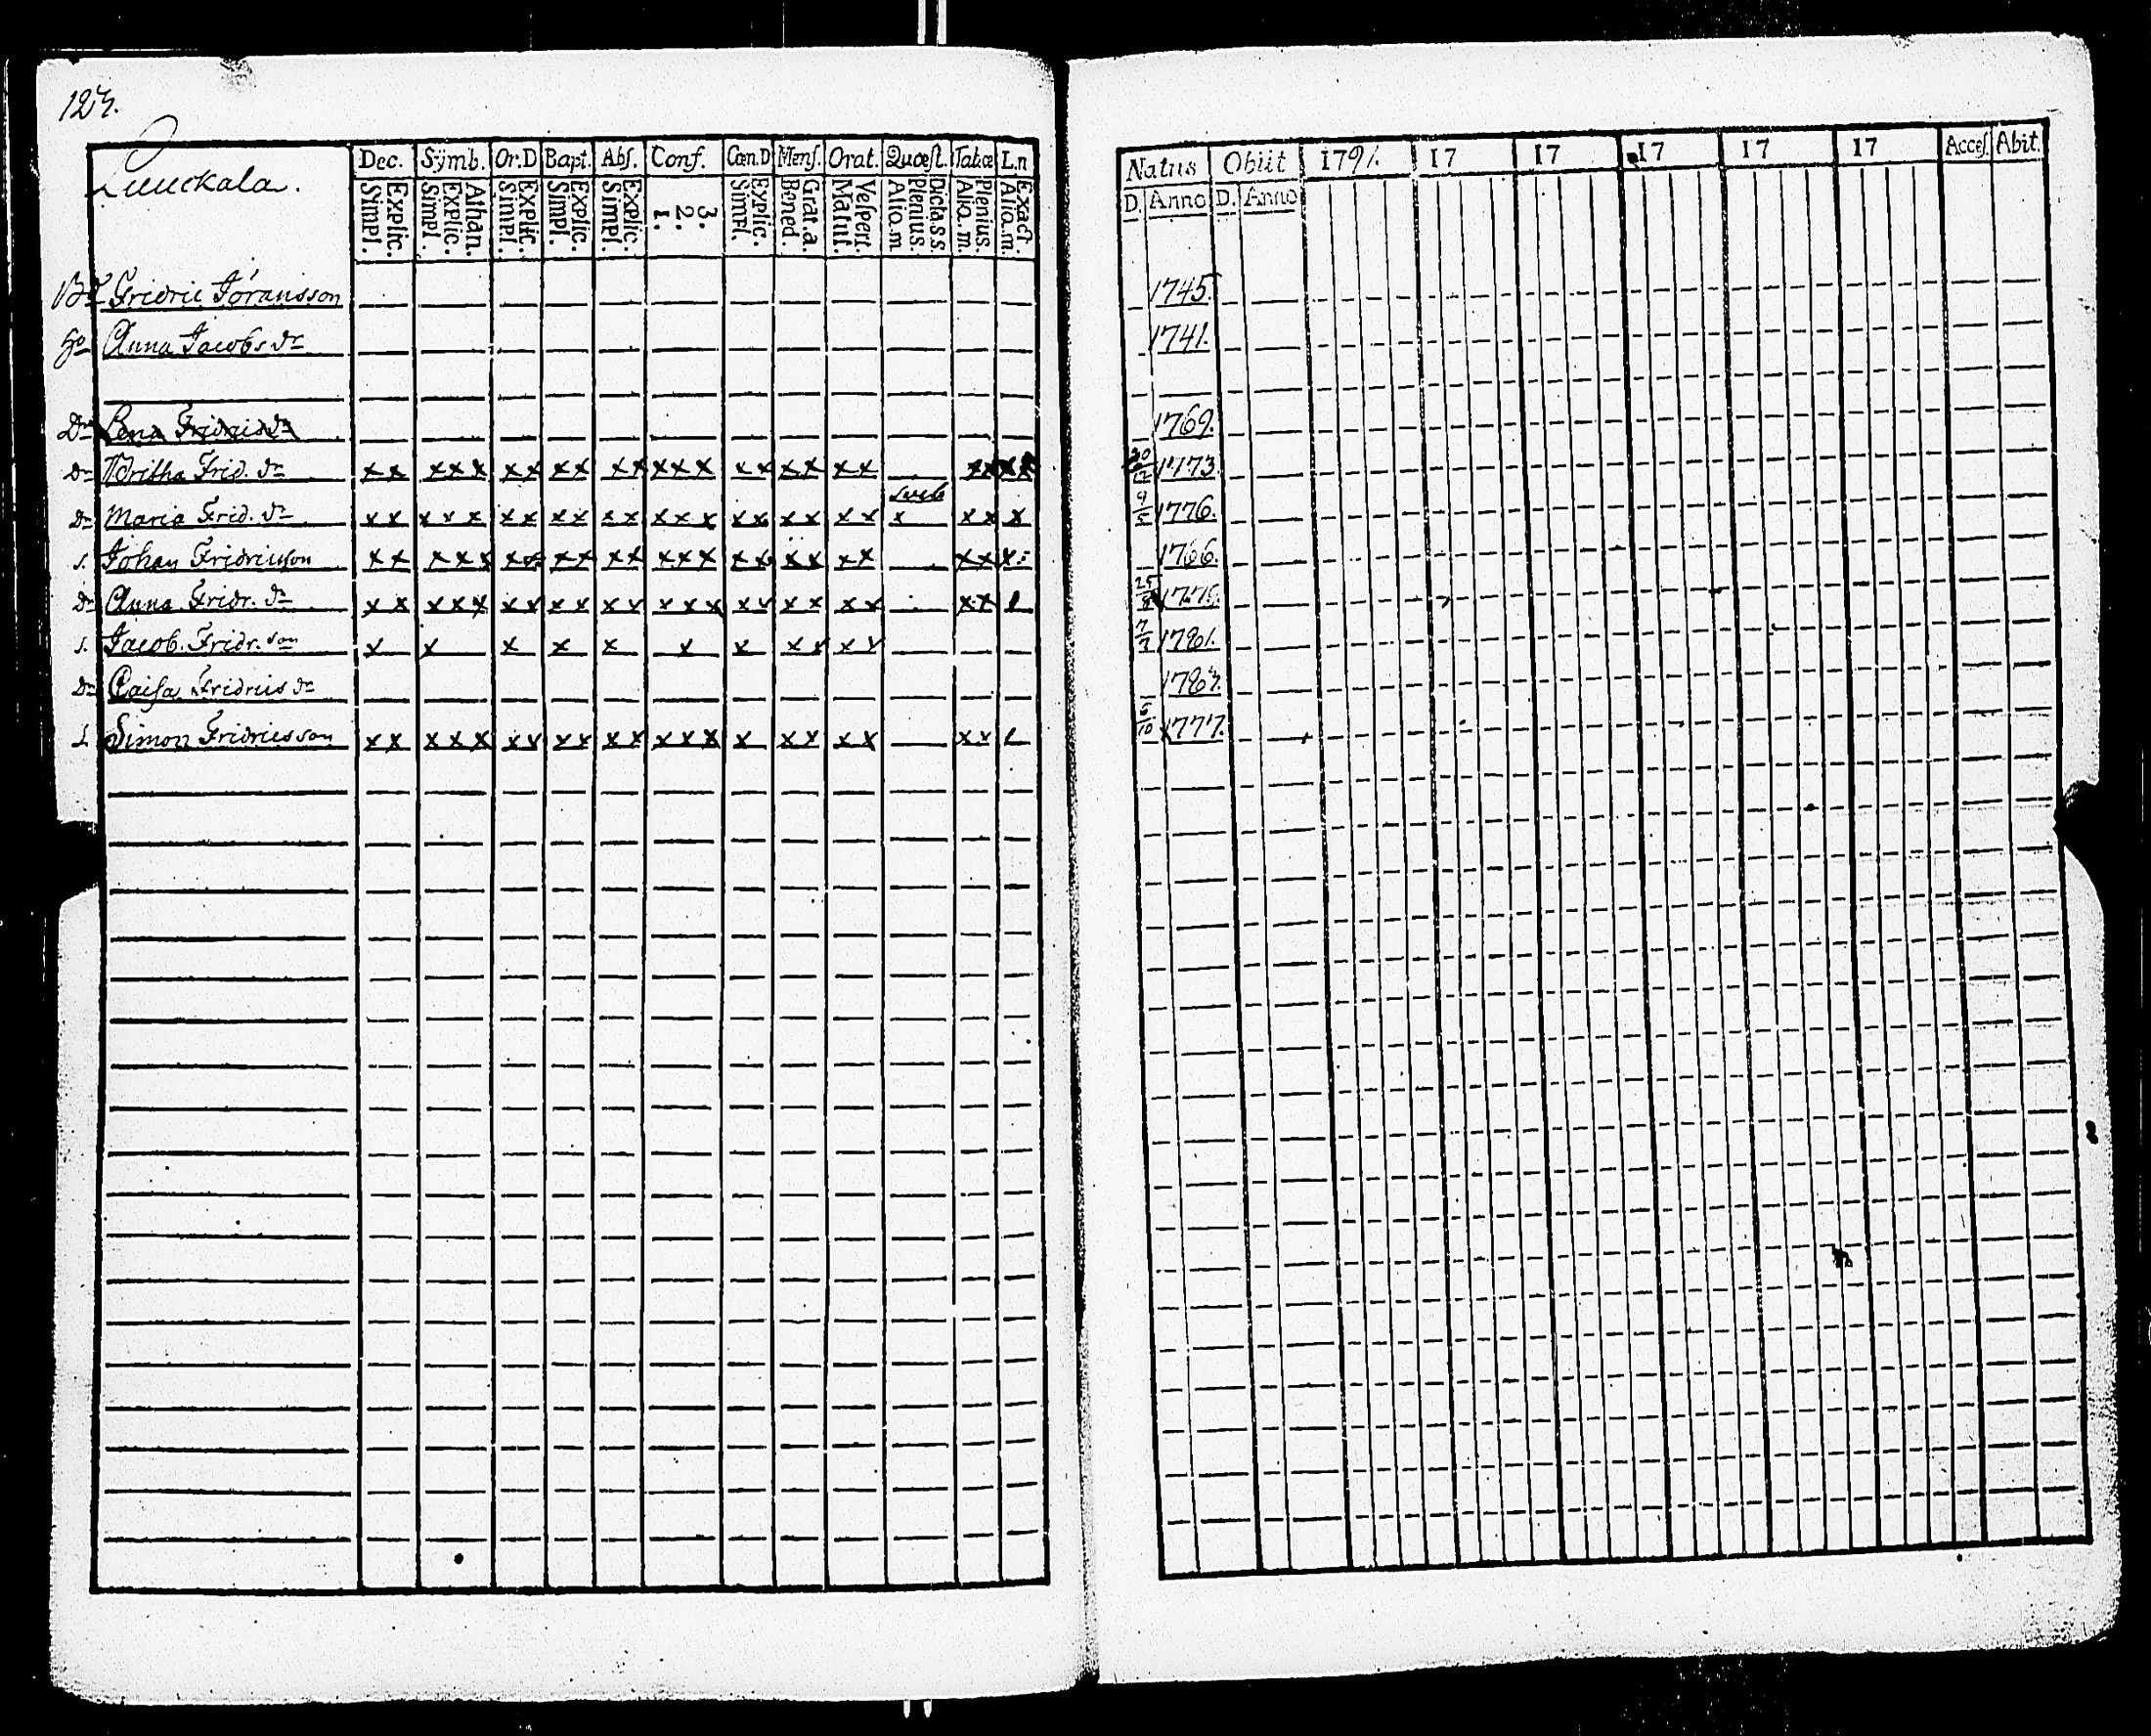 123.
Luuckala.
Dec. Symb. Or.D Bapt. Abs. Conf. Cœn.D Mens. Orat. Quæst. Tabæ L.n
Simpl. Explic. Simpl. Explic. Athan. Simpl. Explic. Simpl. Explic. Simpl. Explic. 1. 2. 3. Simpl. Explic. Bened. Grat.a. Matut. Vespert. Alio.m Plenius. Dicta.s.s. Alio.m. Plenius. Alio.m. Exact.
Natus Obiit 1791. 17 17 17 17 17 Acces. Abit.
D. Anno D. Anno
Bd Fridric Jöransson 1745.
Ho Anna Jacobs dr 1741.
Dr Lena Fridrics dr 1769.
Dr Britha Frid. dr x x x x x x x x x x x x x x x x x x x x x x x x 30/12 1773.
Dr Maria Frid. dr x x x x x x x x x x x x x x x x x x x x x x x x 9/5 1776.
s. Johan Fridricsson x x x x x x x x x x x x x x x x x x x x x x x 1766.
Dr Anna Fridr. dr x x x x x x x x x x x x x x x x x x x x x x 25/8 1775.
s. Jacob Fridr. son x x x x x x x x x x x 7/7 1781.
Dr Caisa Fridrics dr 1783.
s. Simon Fridricsson x x x x x x x x x x x x x x x x x x x x x 6/10 1777.